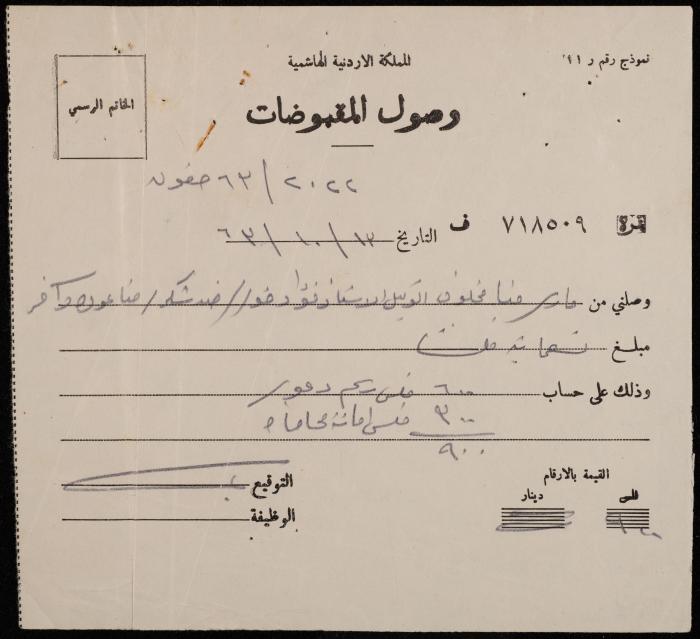 نموذج رقم ر ١١
المملكة الاردنية الهاشمية
الخاتم الرسمي
وصول المقبوضات
٢٠٢٢ / ٦٣ حقوق
نمرة ٧١٨٥٠٩ ف التاريخ ١٣ / ١٠ / ٦٣
وصلني من ماري حنا مخلوف الوكيل الاستاذ فؤاد خوري / ضد شكري حنا عون وآخر
مبلغ تسعماية فلس
وذلك على حساب ٦٠٠ فلس رسم دعوى
٣٠٠ فلس امانة محاماة
٩٠٠
القيمة بالارقام
فلس دينار
٩٠٠
التوقيع
الوظيفة